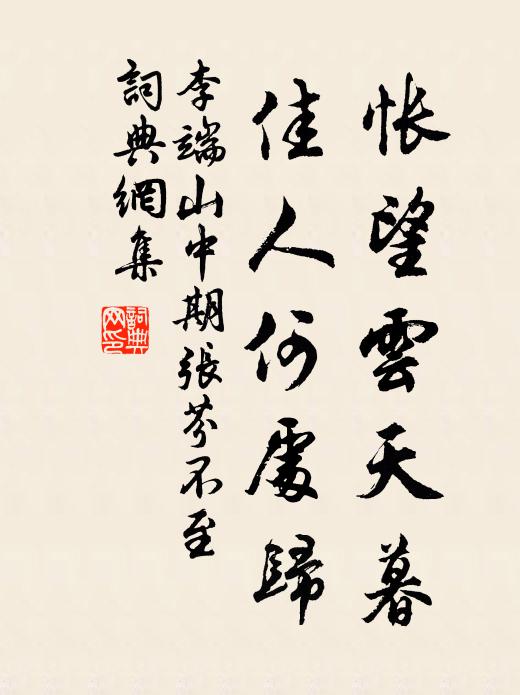 悵望雲天暮
佳人何處歸
李端山中期張芬不至
詞典網集
詞典
网印